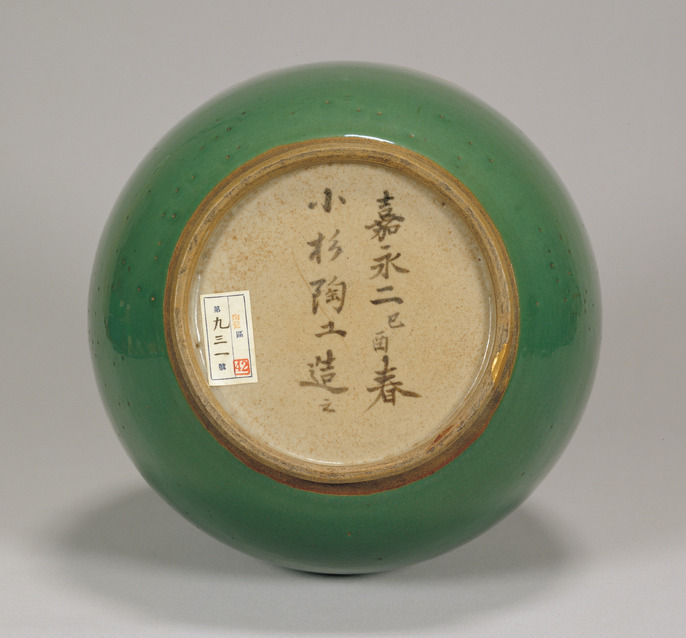 嘉永二己酉春
小杉陶工造之
區
第九三一號